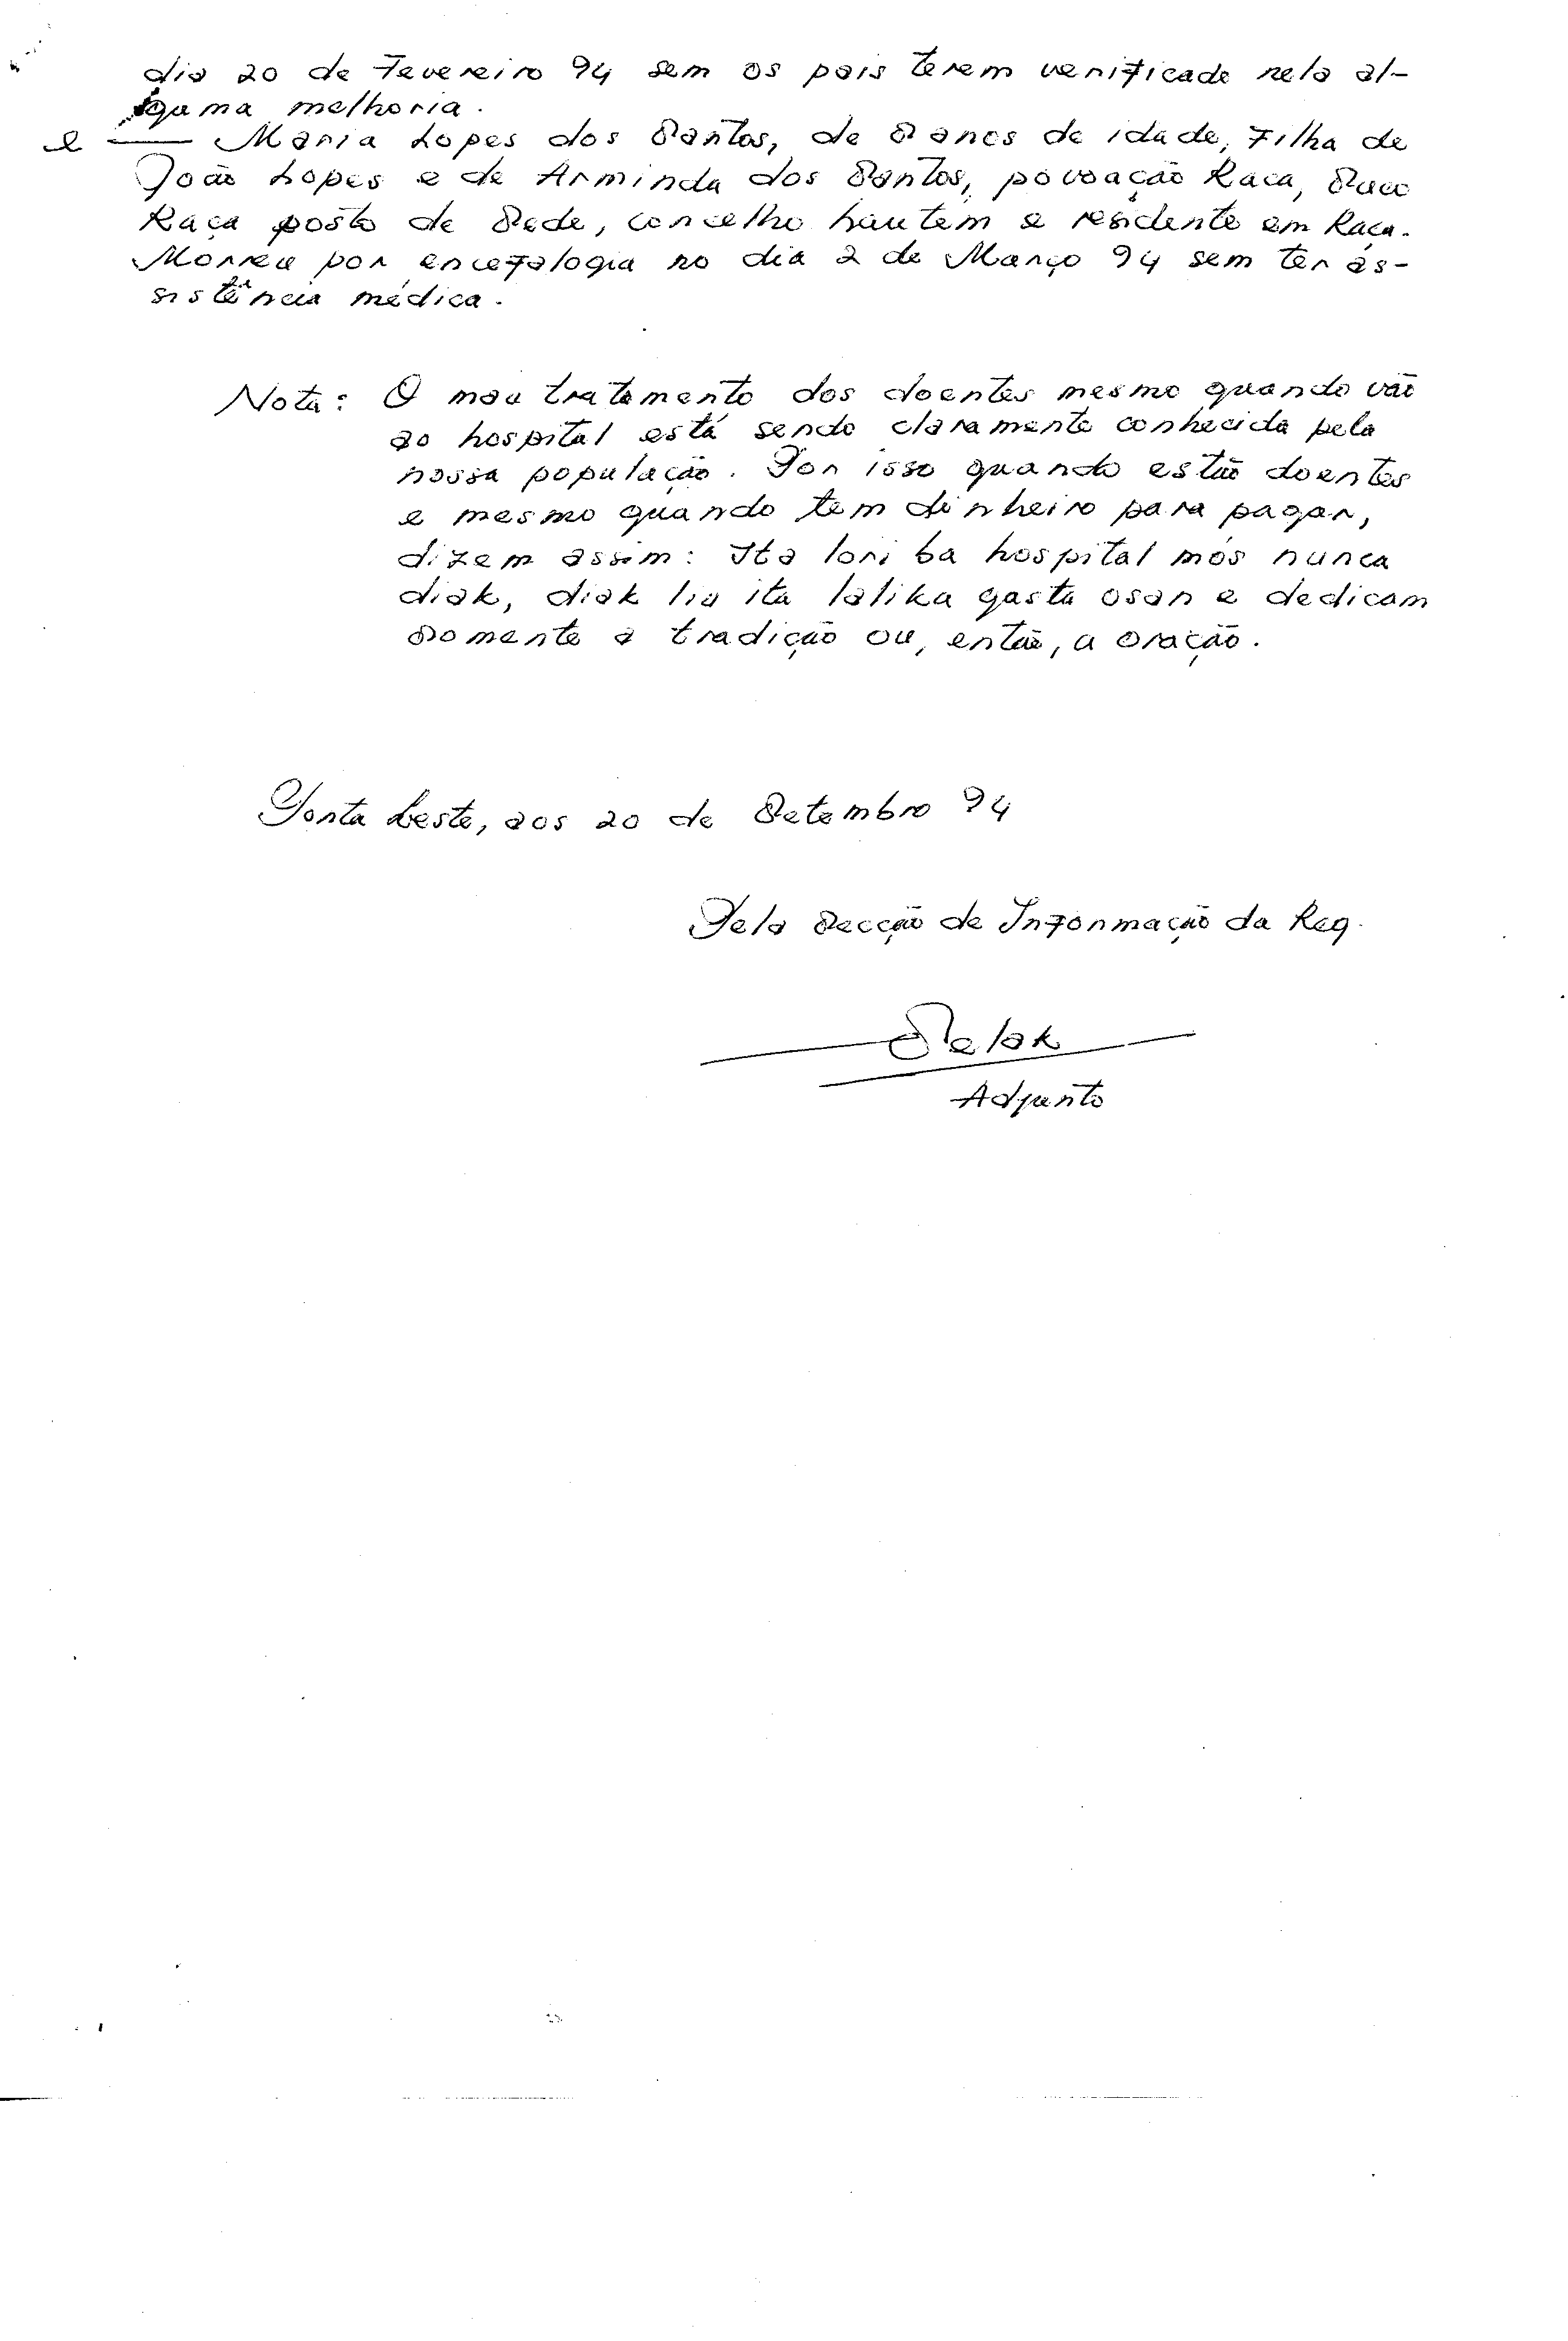 dia 20 de Fevereiro 94 sem os pais terem verificade nela al-
guma melhoria.
e — Maria Lopes dos Santos, de 8 anos de idade, Filha de
João Lopes e de Arminda dos Santos, povoação Raça, Suco
Raça posto de Sede, concelho Lautem e residente em Raça.
Morreu por encefalogia no dia 2 de Março 94 sem ter as-
sistência médica.
Nota: O mau tratamento dos doentes mesmo quando vão
ao hospital está sendo claramente conhecida pela
nossa população. Por isso quando estão doentes
e mesmo quando tem dinheiro para pagar,
dizem assim: Ita lori ba hospital mós nunca
diak, diak liu ita lalika gasta osan e dedicam
somente a tradição ou, então, a oração.
Ponta Leste, aos 20 de Setembro 94
Pela Secção de Informação da Reg.
Selak
Adjunto